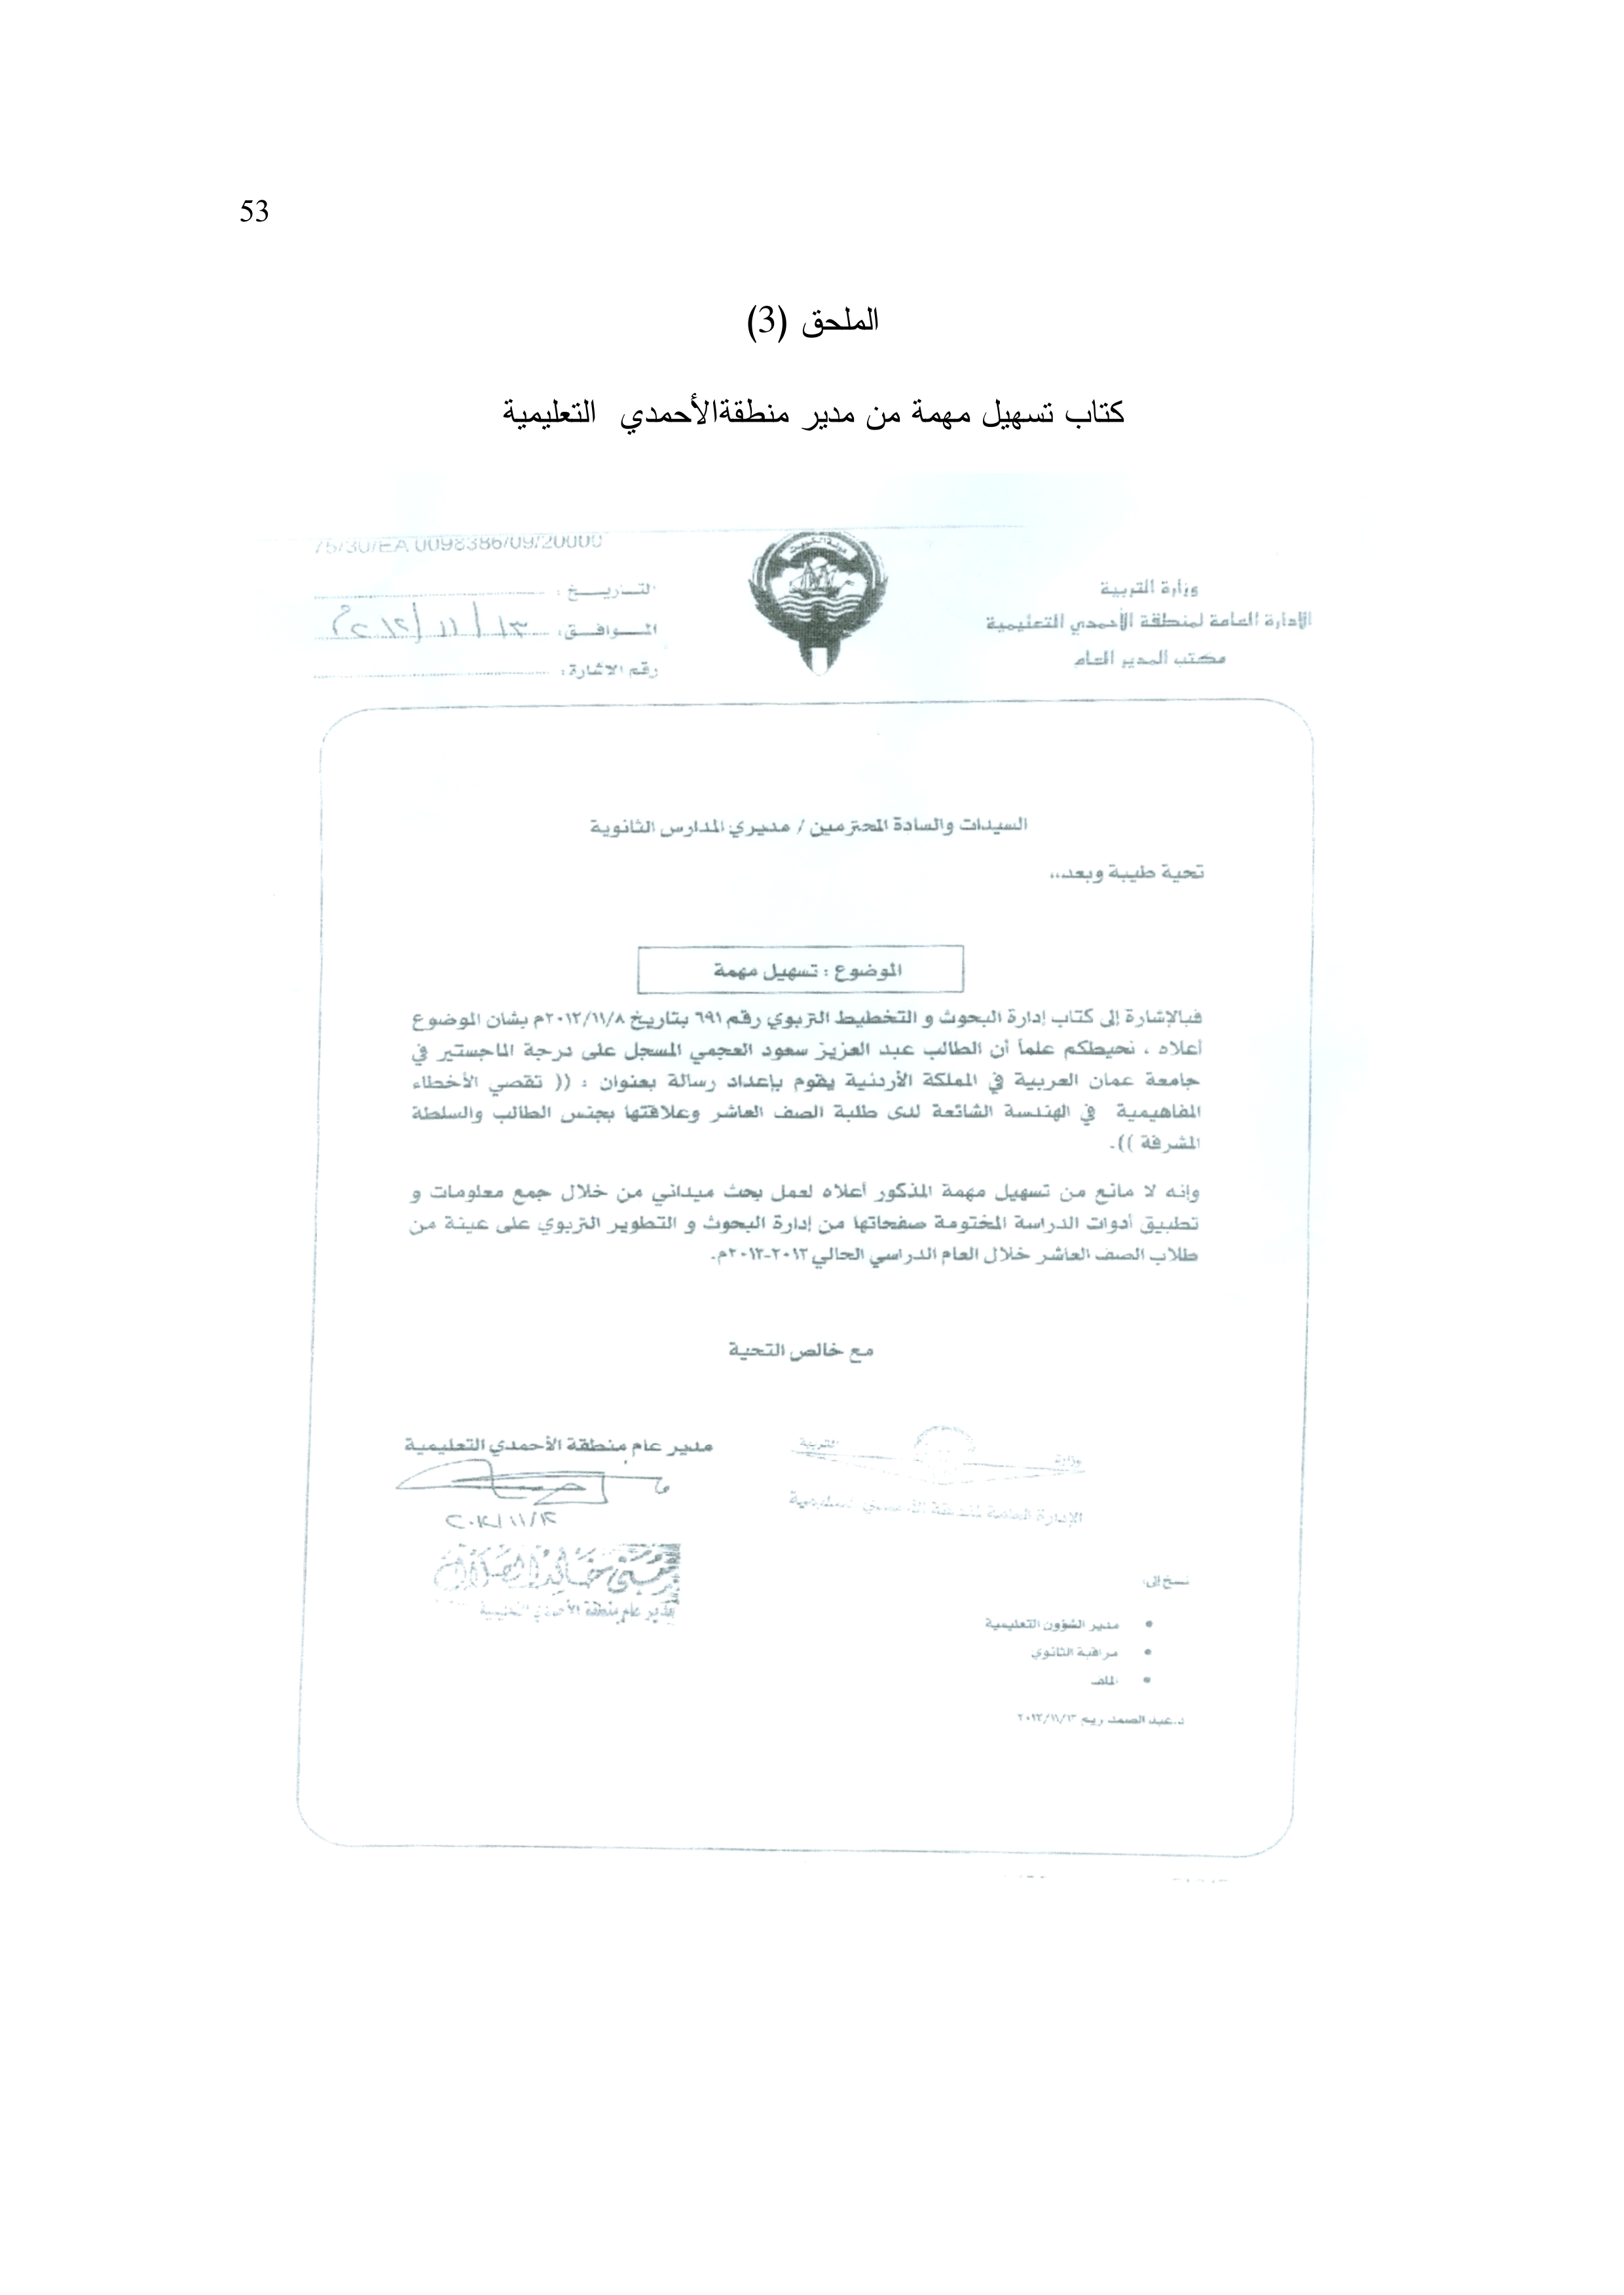 53
الملحق (3)
كتاب تسهيل مهمة من مدير منطقةالأحمدي التعليمية
75/30/EA 0098386/09/20000
دولة الكويت
وزارة التربية
الإدارة العامة لمنطقة الأحمدي التعليمية
مكتب المدير العام
التـاريـــخ :
المـوافـق: ١٣/ ١١ /٢٠١٢م
رقم الاشارة:
السيدات والسادة المحترمين / مديري المدارس الثانوية
تحية طيبة وبعد،،
الموضوع : تسهيل مهمة
فبالإشارة إلى كتاب إدارة البحوث و التخطيط التربوي رقم ٦٩١ بتاريخ ٢٠١٢/١١/٨م بشأن الموضوع
أعلاه ، نحيطكم علماً أن الطالب عبد العزيز سعود العجمي المسجل على درجة الماجستير في
جامعة عمان العربية في المملكة الأردنية يقوم بإعداد رسالة بعنوان : (( تقصي الأخطاء
المفاهيمية في الهندسة الشائعة لدى طلبة الصف العاشر وعلاقتها بجنس الطالب والسلطة
المشرفة )).
وإنه لا مانع من تسهيل مهمة المذكور أعلاه لعمل بحث ميداني من خلال جمع معلومات و
تطبيق أدوات الدراسة المختومة صفحاتها من إدارة البحوث و التطوير التربوي على عينة من
طلاب الصف العاشر خلال العام الدراسي الحالي ٢٠١٢-٢٠١٣م.
مع خالص التحية
مدير عام منطقة الأحمدي التعليمية
وزارة التربية
الإدارة العامة لمنطقة الأحمدي التعليمية
مدير عام منطقة الأحمدي التعليمية
نسخ إلى:
• مدير الشؤون التعليمية
• مراقبة الثانوي
• الملف
د.عبد الصمد ريم ٢٠١٢/١١/١٣